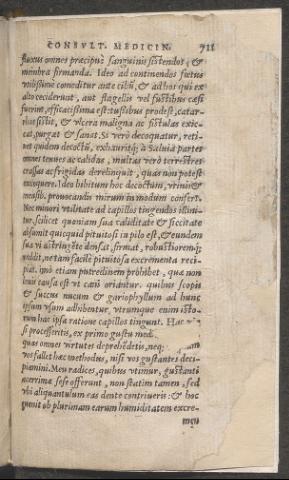 CONSVLT. MEDICIN. 711
fluxus omnes præcipuè sanguinis sistendos, &
membra firmanda. Ideo ad continendos fœtus
utilissimè comeditur ante cibũ, & ad hos qui ex
alto ceciderunt, aut flagellis vel fustibus cæsi
fuerint, efficacissima est: tussibus prodest, catar-
rhos sistit, & ulcera maligna ac fistulas exic-
cat, purgat & sanat. Si verò decoquatur, reti-
net quidem decoctũ, exhauritq́; à Saluia partes
omnes tenues ac calidas, multas verò terrestres
crassas ac frigidas derelinquit, quas non potest
exuere. Ideo bibitum hoc decoctum, urinis &
mensib. prouocandis mirum in modum confert.
Nec minori utilitate ad capillos tingendos illini-
tur, scilicet quoniam sua caliditate & siccitate
absumit quicquid pituitosi in pilo est, & eundem
sua vi astringẽte densat, firmat, robustioremq́;
reddit, ne tam facilè pituitosa excrementa reci-
piat. imò etiam putredinem prohibet, qua non
leuis causa est ut cani oriantur. quibus scopis
& succus nucum & gariophyllum ad hunc
usum adhibentur, utrumque enim isto-
rum hac ipsa ratione capillos tingunt. Hac
si processeritis, ex primo gustu med
quas omnes virtutes deprehẽdetis, neq;
vos fallet hæc methodus, nisi vos gustantes deci-
piamini. Meu radices, quibus vtimur, gustanti
acerrimæ sese offerunt, non statim tamen, sed
vbi aliquantulum eas dente contriueris: & hoc
euenit ob plurimam earum humiditatem excre-
men